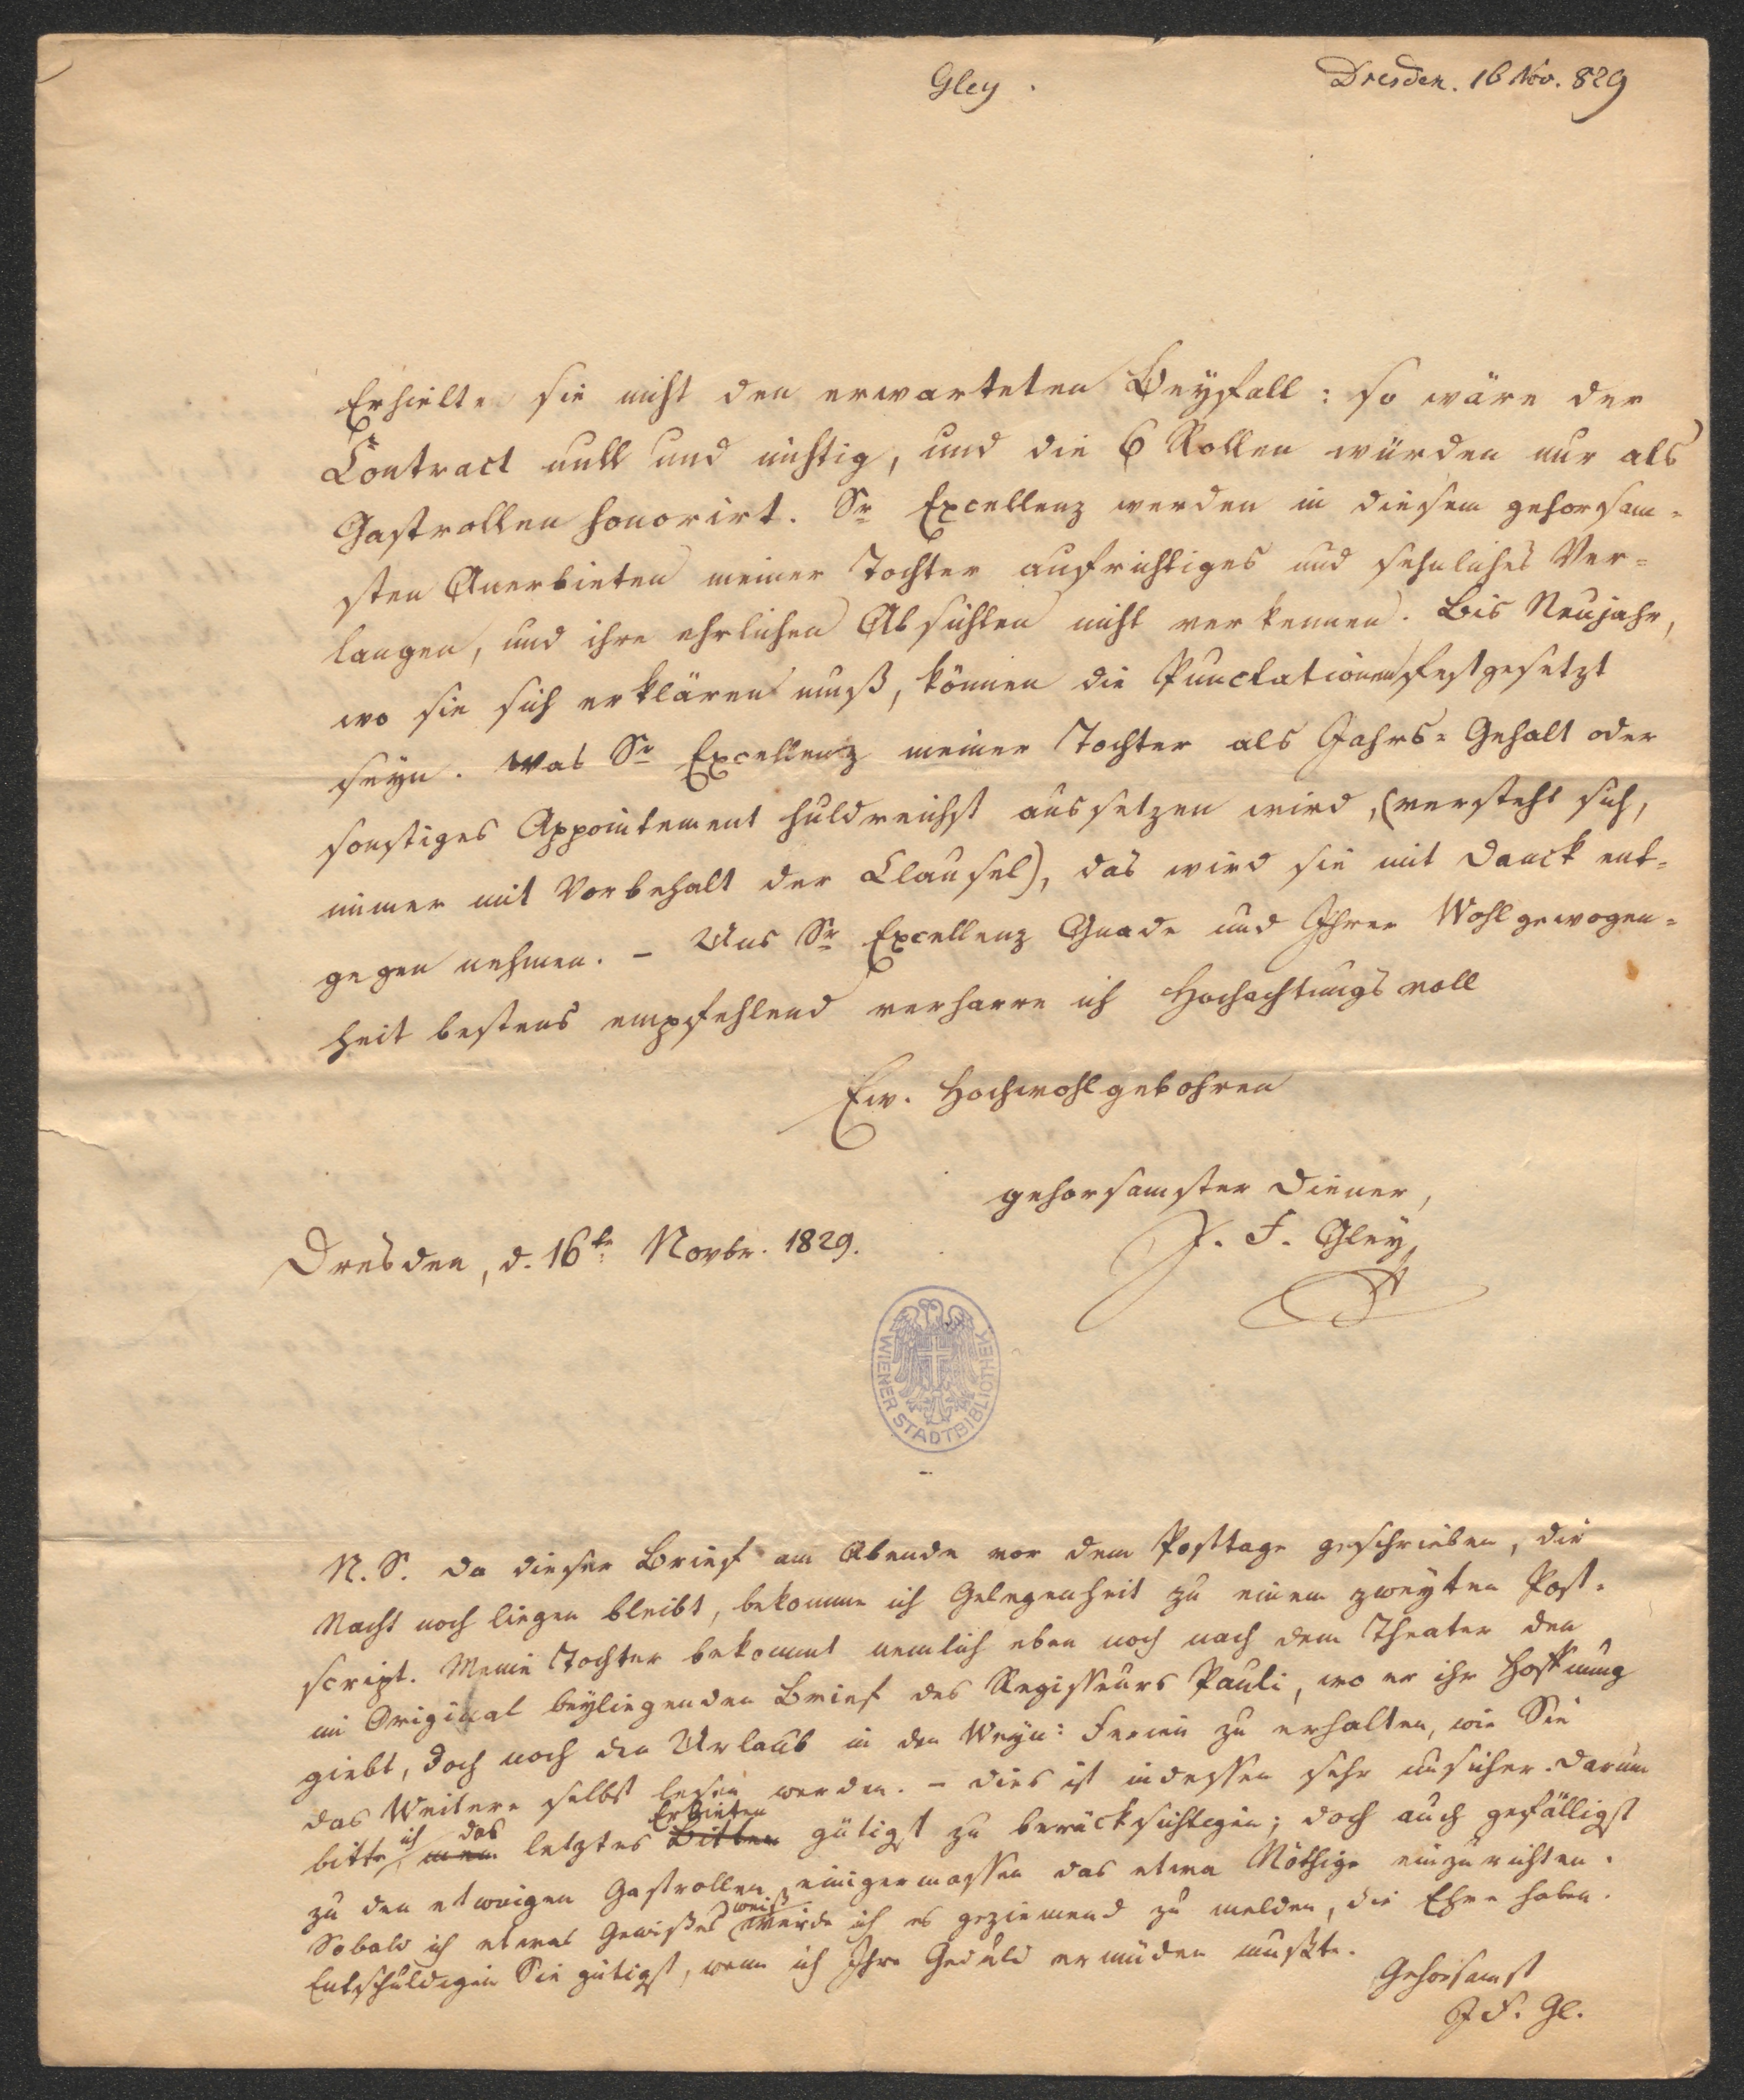 Gley.
Dresden. 16 Nov. 829
Erhielte sie nicht den erwarteten Beyfall: so wäre der
Contract null und nichtig, und die 6 Rollen würden nur als
Gastrollen honorirt. Sr Excellenz werden in diesem gehorsam=
sten Anerbieten meiner Tochter aufrichtiges und sehnliches Ver=
langen, und ihre ehrlichen Absichten nicht verkennen. Bis Neujahr,
wo sie sich erklären muß, können die Punctationen festgesetzt
seyn. Was Sr Excellenz meiner Tochter als Jahrs=Gehalt oder
sonstiges Appointement huldreichst aussetzen wird, (versteht sich,
immer mit Vorbehalt der Clausel), das wird sie mit Danck ent=
gegen nehmen. – Uns Sr Excellenz Gnade und Ihrer Wohlgewogen=
heit bestens empfehlend verharre ich Hochachtungsvoll
Ew. Hochwohlgebohren
gehorsamster Diener,
J. F. Gley
Dresden, d. 16te Novbr. 1829.
WIENER STADTBIBLIOTHEK
N. S. Da dieser Brief am Abende vor dem Posttage geschrieben, die
Nacht noch liegen bleibt, bekomme ich Gelegenheit zu einem zweyten Post=
script. Meine Tochter bekommt nemlich eben noch nach dem Theater den
im Original beyliegenden Brief des Regisseurs Pauli, wo er ihr Hoffnung
giebt, doch noch den Urlaub in den Weyn: Ferien zu erhalten, wie Sie
das Weitere selbst lesen werden. – Dies ist indessen sehr unsicher. Darum
bitte ich mein das letztes Bitten Erbieten gütigst zu berücksichtigen; doch auch gefälligst
zu den etwaigen Gastrollen einigermassen das etwa Nöthige einzurichten.
Sobald ich etwas Gewißes weiß werde ich es geziemend zu melden, die Ehre haben.
Entschuldigen Sie gütigst, wenn ich Ihre Geduld ermüden mußte.
Gehorsamst
J F. Gl.